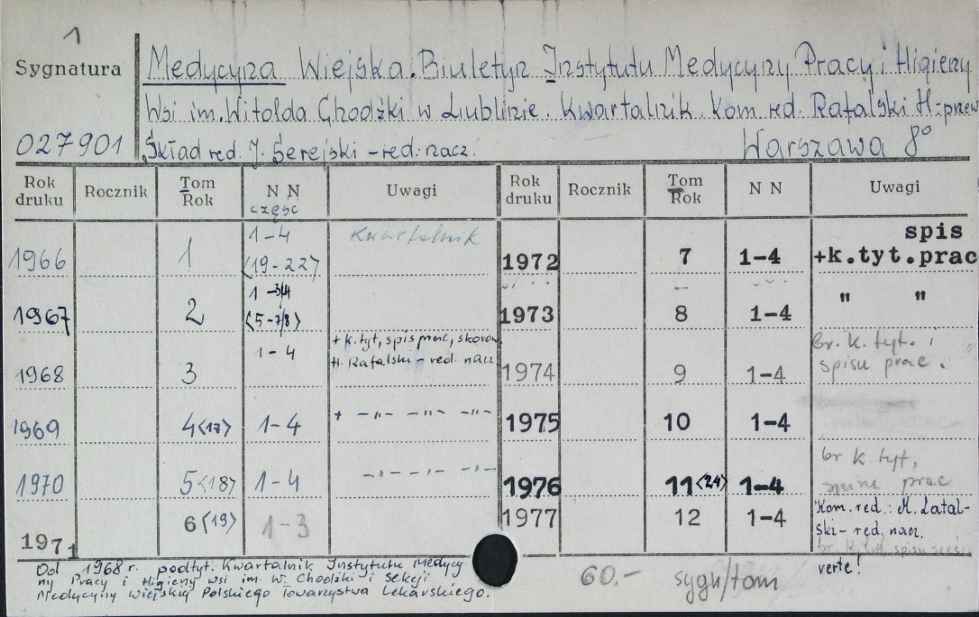 1
Sygnatura
Medycyna Wiejska. Biuletyn Instytutu Medycyny Pracy i Higieny
Wsi im. Witolda Chodźki w Lublinie. Kwartalnik. Kom. red. Rafalski H-przew
027901
Skład red. J. Serejski - red. nacz.
Warszawa 8°
Rok druku Rocznik Tom Rok N N część Uwagi Rok druku Rocznik Tom Rok N N Uwagi
1966 1 1-4 <19-22> Kwartalnik
1967 2 1-3/4 <5-7/8>
1968 3 1-4 + k. tyt, spis prac, skorow H. Rafalski - red. nacz
1969 4<17> 1-4 + -"- -"- -"-
1970 5<18> 1-4 -"- -"- -"-
1971 6<19> 1-3
1972 7 1-4 spis +k.tyt.prac
1973 8 1-4 " "
1974 9 1-4 br. k. tyt. i spisu prac.
1975 10 1-4
1976 11<24> 1-4 br k. tyt, prac
1977 12 1-4 Kom. red.: M. Latalski - red. nacz.
verte!
Od 1968 r. podtyt. Kwartalnik Instytutu Medycy
ny Pracy i Higieny wsi im. W. Chodźki i Sekcji
Medycyny Wiejskiej Polskiego Towarzystwa Lekarskiego.
60.- sygn/tom